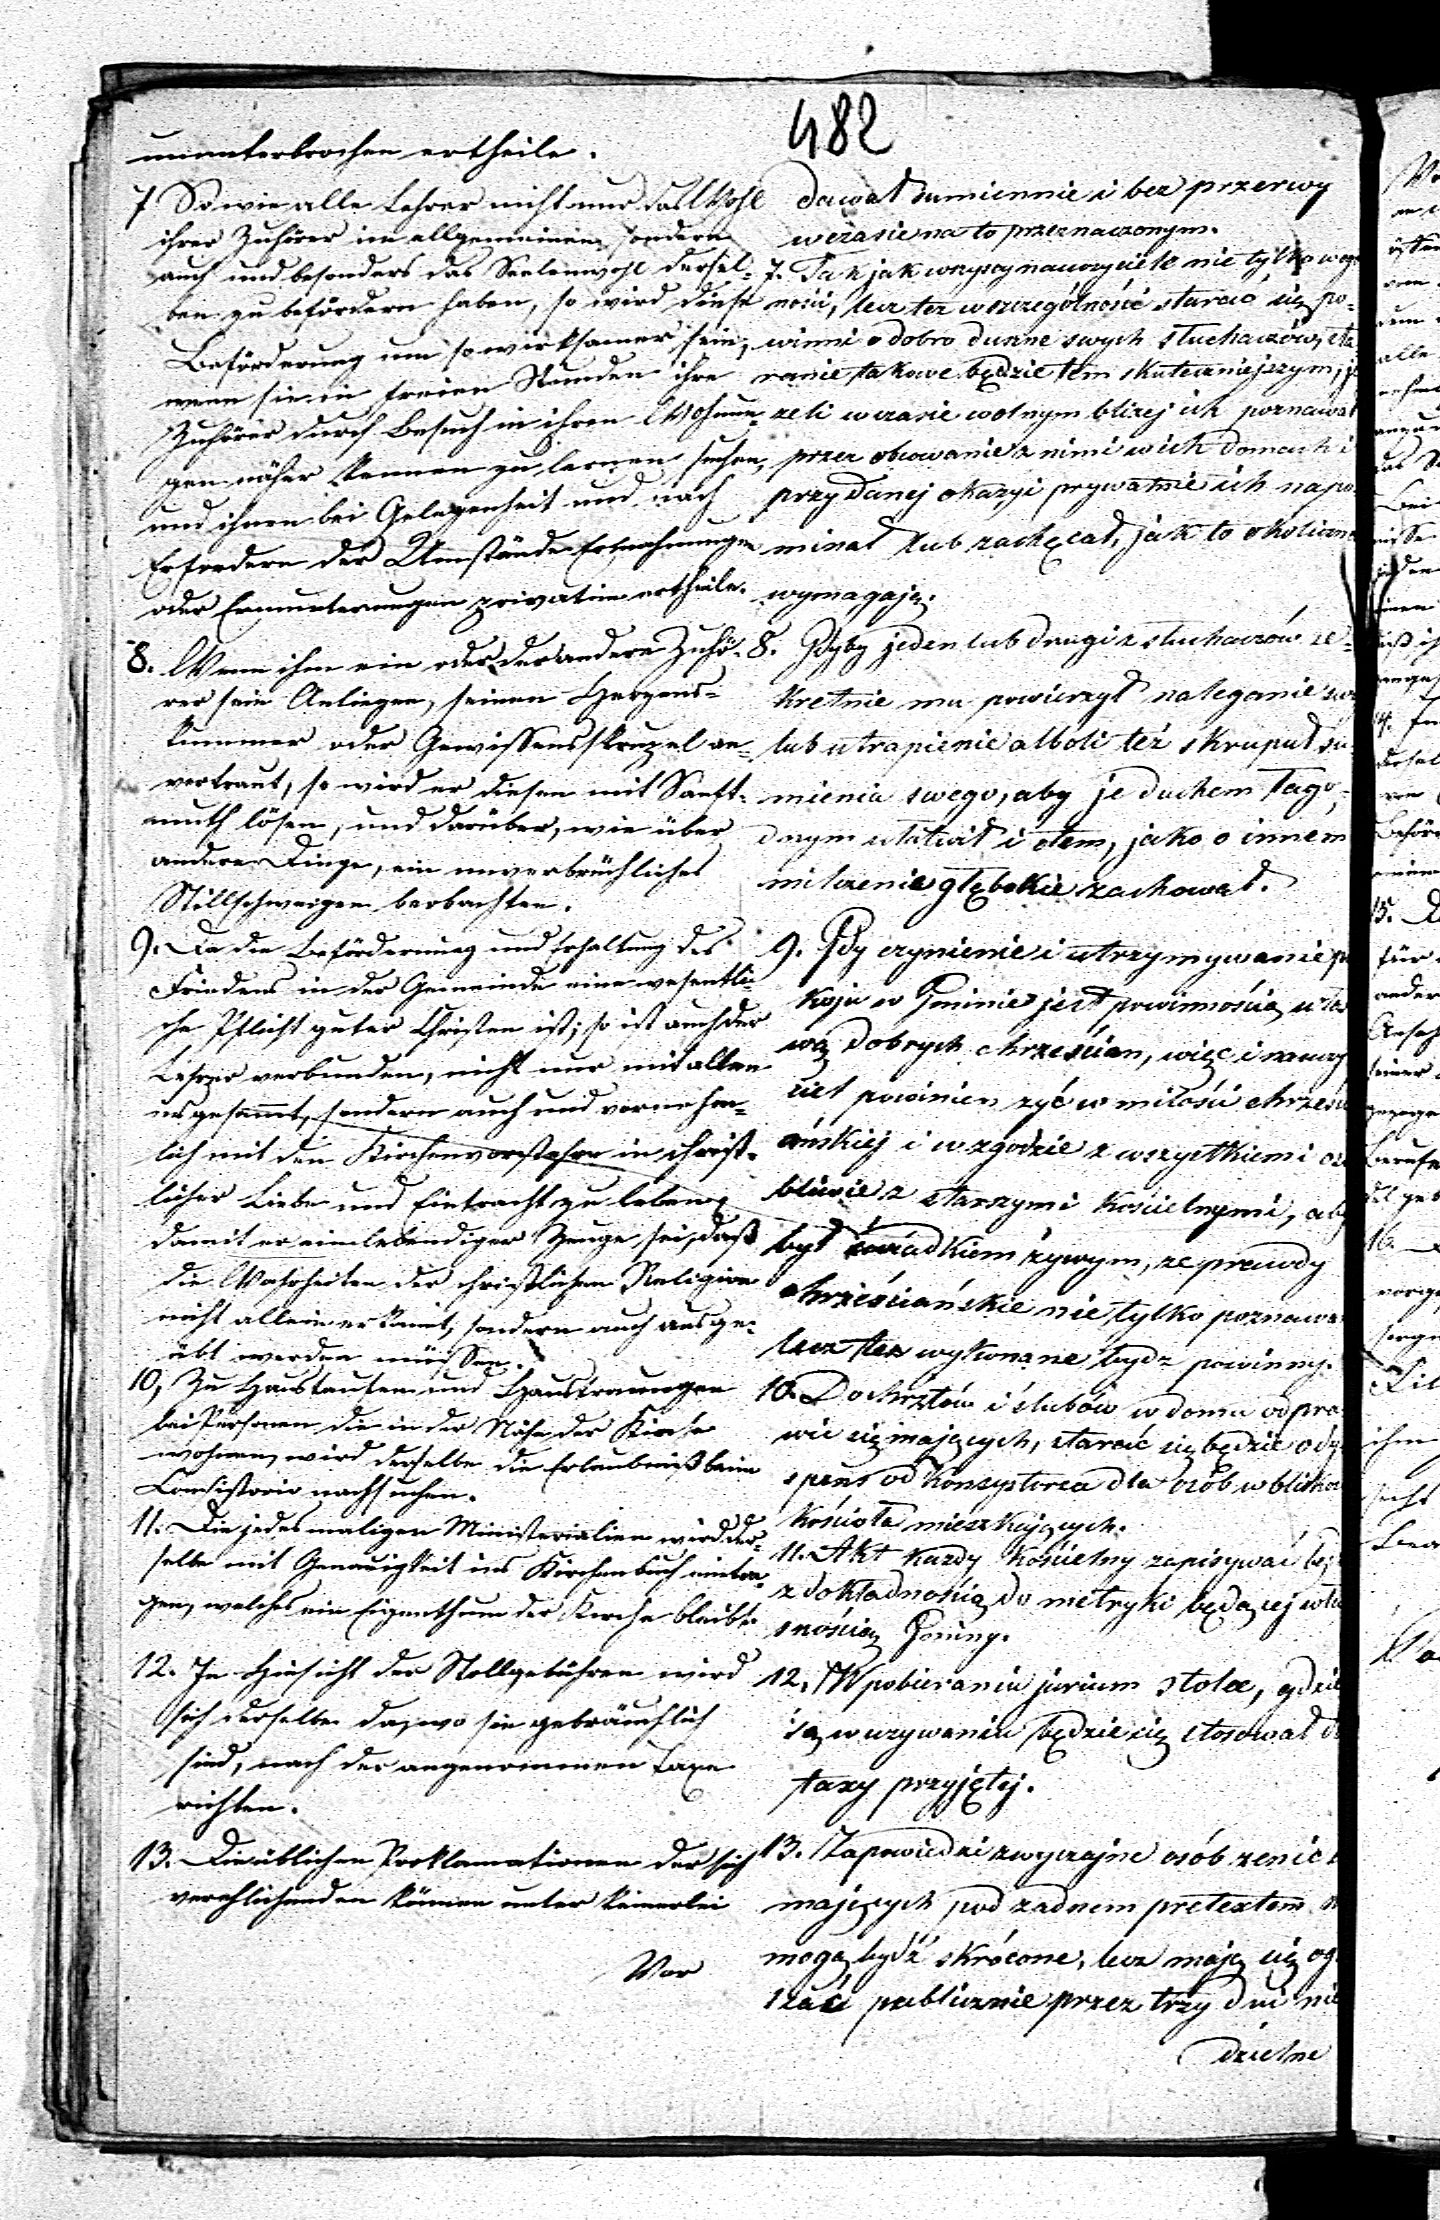 482
ununterbrochen ertheile.
7 So wie alle Lehrer nicht nur das Wohl
ihrer Zuhörer im allgemeinen, sondern
auch und besonders das Seelenwohl dersel-
ben zu befördern haben, so wird diese
Beförderung um so wirksamer sein,
wenn sie in freien Stunden ihre
Zuhörer durch Besuch in ihren Wohnun-
gen näher kennen zu lernen suchen,
und ihnen bei Gelegenheit und nach
Erfordern der Umstände Ermahnungen
oder Ermunterungen privatim ertheile.
8. Wenn ihm ein oder der andere Zuhö-
rer sein Anliegen, seinen Herzens-
kummer oder Gewissensskrupel an-
vertraut, so wird er diesen mit Sanft-
muth lösen, und darüber, wie über
andere Dinge, ein unverbrüchliches
Stillschweigen beobachten.
9. Da die Beförderung und Erhaltung des
Friedens in der Gemeinde eine wesentli-
che Pflicht guter Christen ist; so ist auch der
Lehrer verbunden, nicht nur mit allen
insgesammt, sondern auch und vornehm-
lich mit den Kirchenvorstehern in christ-
licher Liebe und Eintracht zu leben,
damit er ein lebendiger Zeuge sei, daß
die Wahrheiten der christlichen Religion
nicht allein erkannt, sondern auch ausge-
übt werden müssen.
10, Zu Haustaufen und Haustrauungen
bei Personen die in der Nähe der Kirche
wohnen, wird derselbe die Erlaubniß beim
Consistorio nachsuchen.
11. Die jedesmaligen Ministerialien wird der-
selbe mit Genauigkeit ins Kirchenbuch eintra-
gen, welches ein Eigenthum der Kirche bleibt.
12. In Hinsicht der Stollgebühren wird
sich derselbe da, wo sie gebräuchlich
sind, nach der angenommen Taxe
richten.
13. Die üblichen Proklamationen der sich
verehlichenden können unter keinerlei
Vor
dawał sumiennie i bez przerwy
w czasie na to przeznaczonym.
7. Tak jak wszyscy nauczyciele nie tylko w og
ności, lecz też w szczególność starać się po-
winni o dobro duszne swych słuchaczów, sta
ranie takowe będzie tem skuteczniejszym, je
zeli w czasie wolnym bliżej ich poznawał
przez obcowanie z nimi w ich domach i
przy danej okazyi prywatnie ich napo
minał lub zachęcał, jak to okoliczno
wymagają.
8. Gdyby jeden lub drugi z słuchaczów se-
kretnie mu powierzył naleganie swe
lub utrapienie alboli też skrupuł su-
mienia swego, aby je duchem łago-
dnym ułatwił i o tem, jako o innem
milczenie głębokie zachował.
9. Gdy czynienie i utrzymywanie po
koju w Gminie jest powinnością wła
wą dobrych chrześcian, więc i nauczy
ciel powinien żyć w miłości chrześci
ańskiej i w zgodzie z wszystkiemi oso
bliwie z starszymi kościelnymi, aby
był świadkiem żywym, ze prawdy
chrześciańskie nie tylko poznawa
lecz też wykonane bydz powinny.
10. Do chrztów i ślubów w domu odpra
wić się mających, starać się będzie o dy
spens od Konsystorza dla osób w blisko
kościoła mieszkających.
11. Akt kazdy kościelny zapisywać będ
z dokładnością do metryki będącej wła
snością Gminy.
12. W pobieraniu jurium stolæ, gdzie
są w uzywaniu będzie się stosował do
taxy przyjętej.
13. Zapowiedzi zwyczajne osób zenić s
mających pod zadnem pretextem n
mogą bydź skrócone, lecz mają się ogł
szać publicznie przez trzy dni nie
dzielne